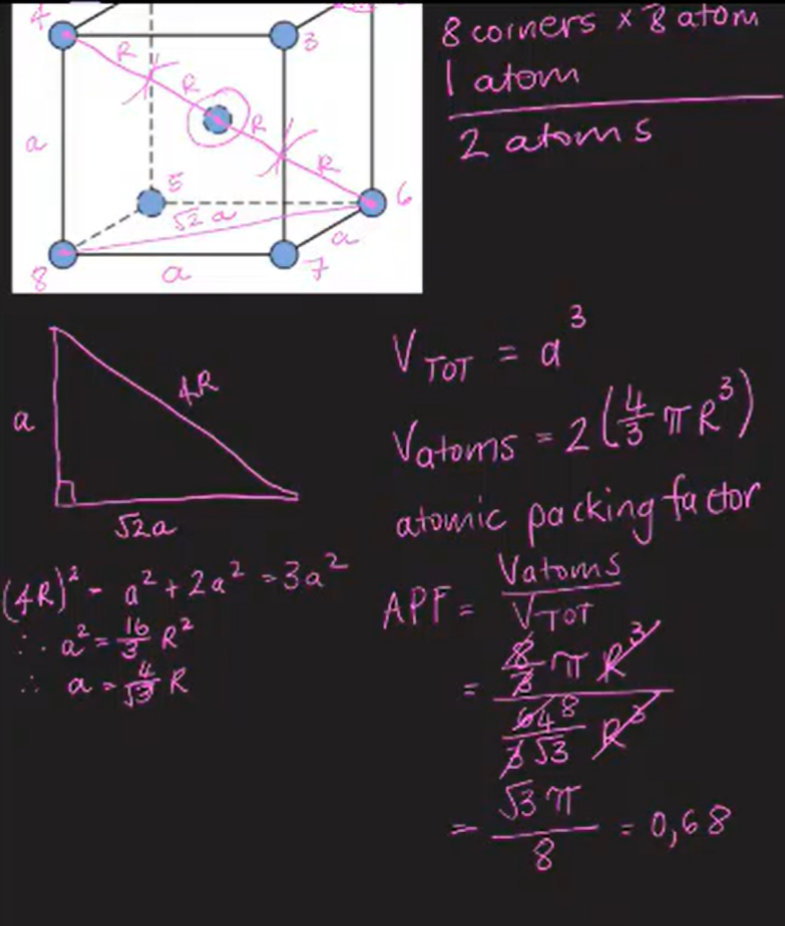 4
3
R
R
R
R
a
5
6
√2 a
a
8
a
7
8 corners × 8 atom
1 atom
2 atoms
a
4R
√2a
(4R)² = a² + 2a² = 3a²
∴ a² = 16/3 R²
∴ a = 4/√3 R
V TOT = a³
Vatoms = 2(4/3 πR³)
atomic packing factor
APF = Vatoms / VTOT
= 8/3 π R³ / 64 8/3√3 R³
= √3 π / 8 = 0,68